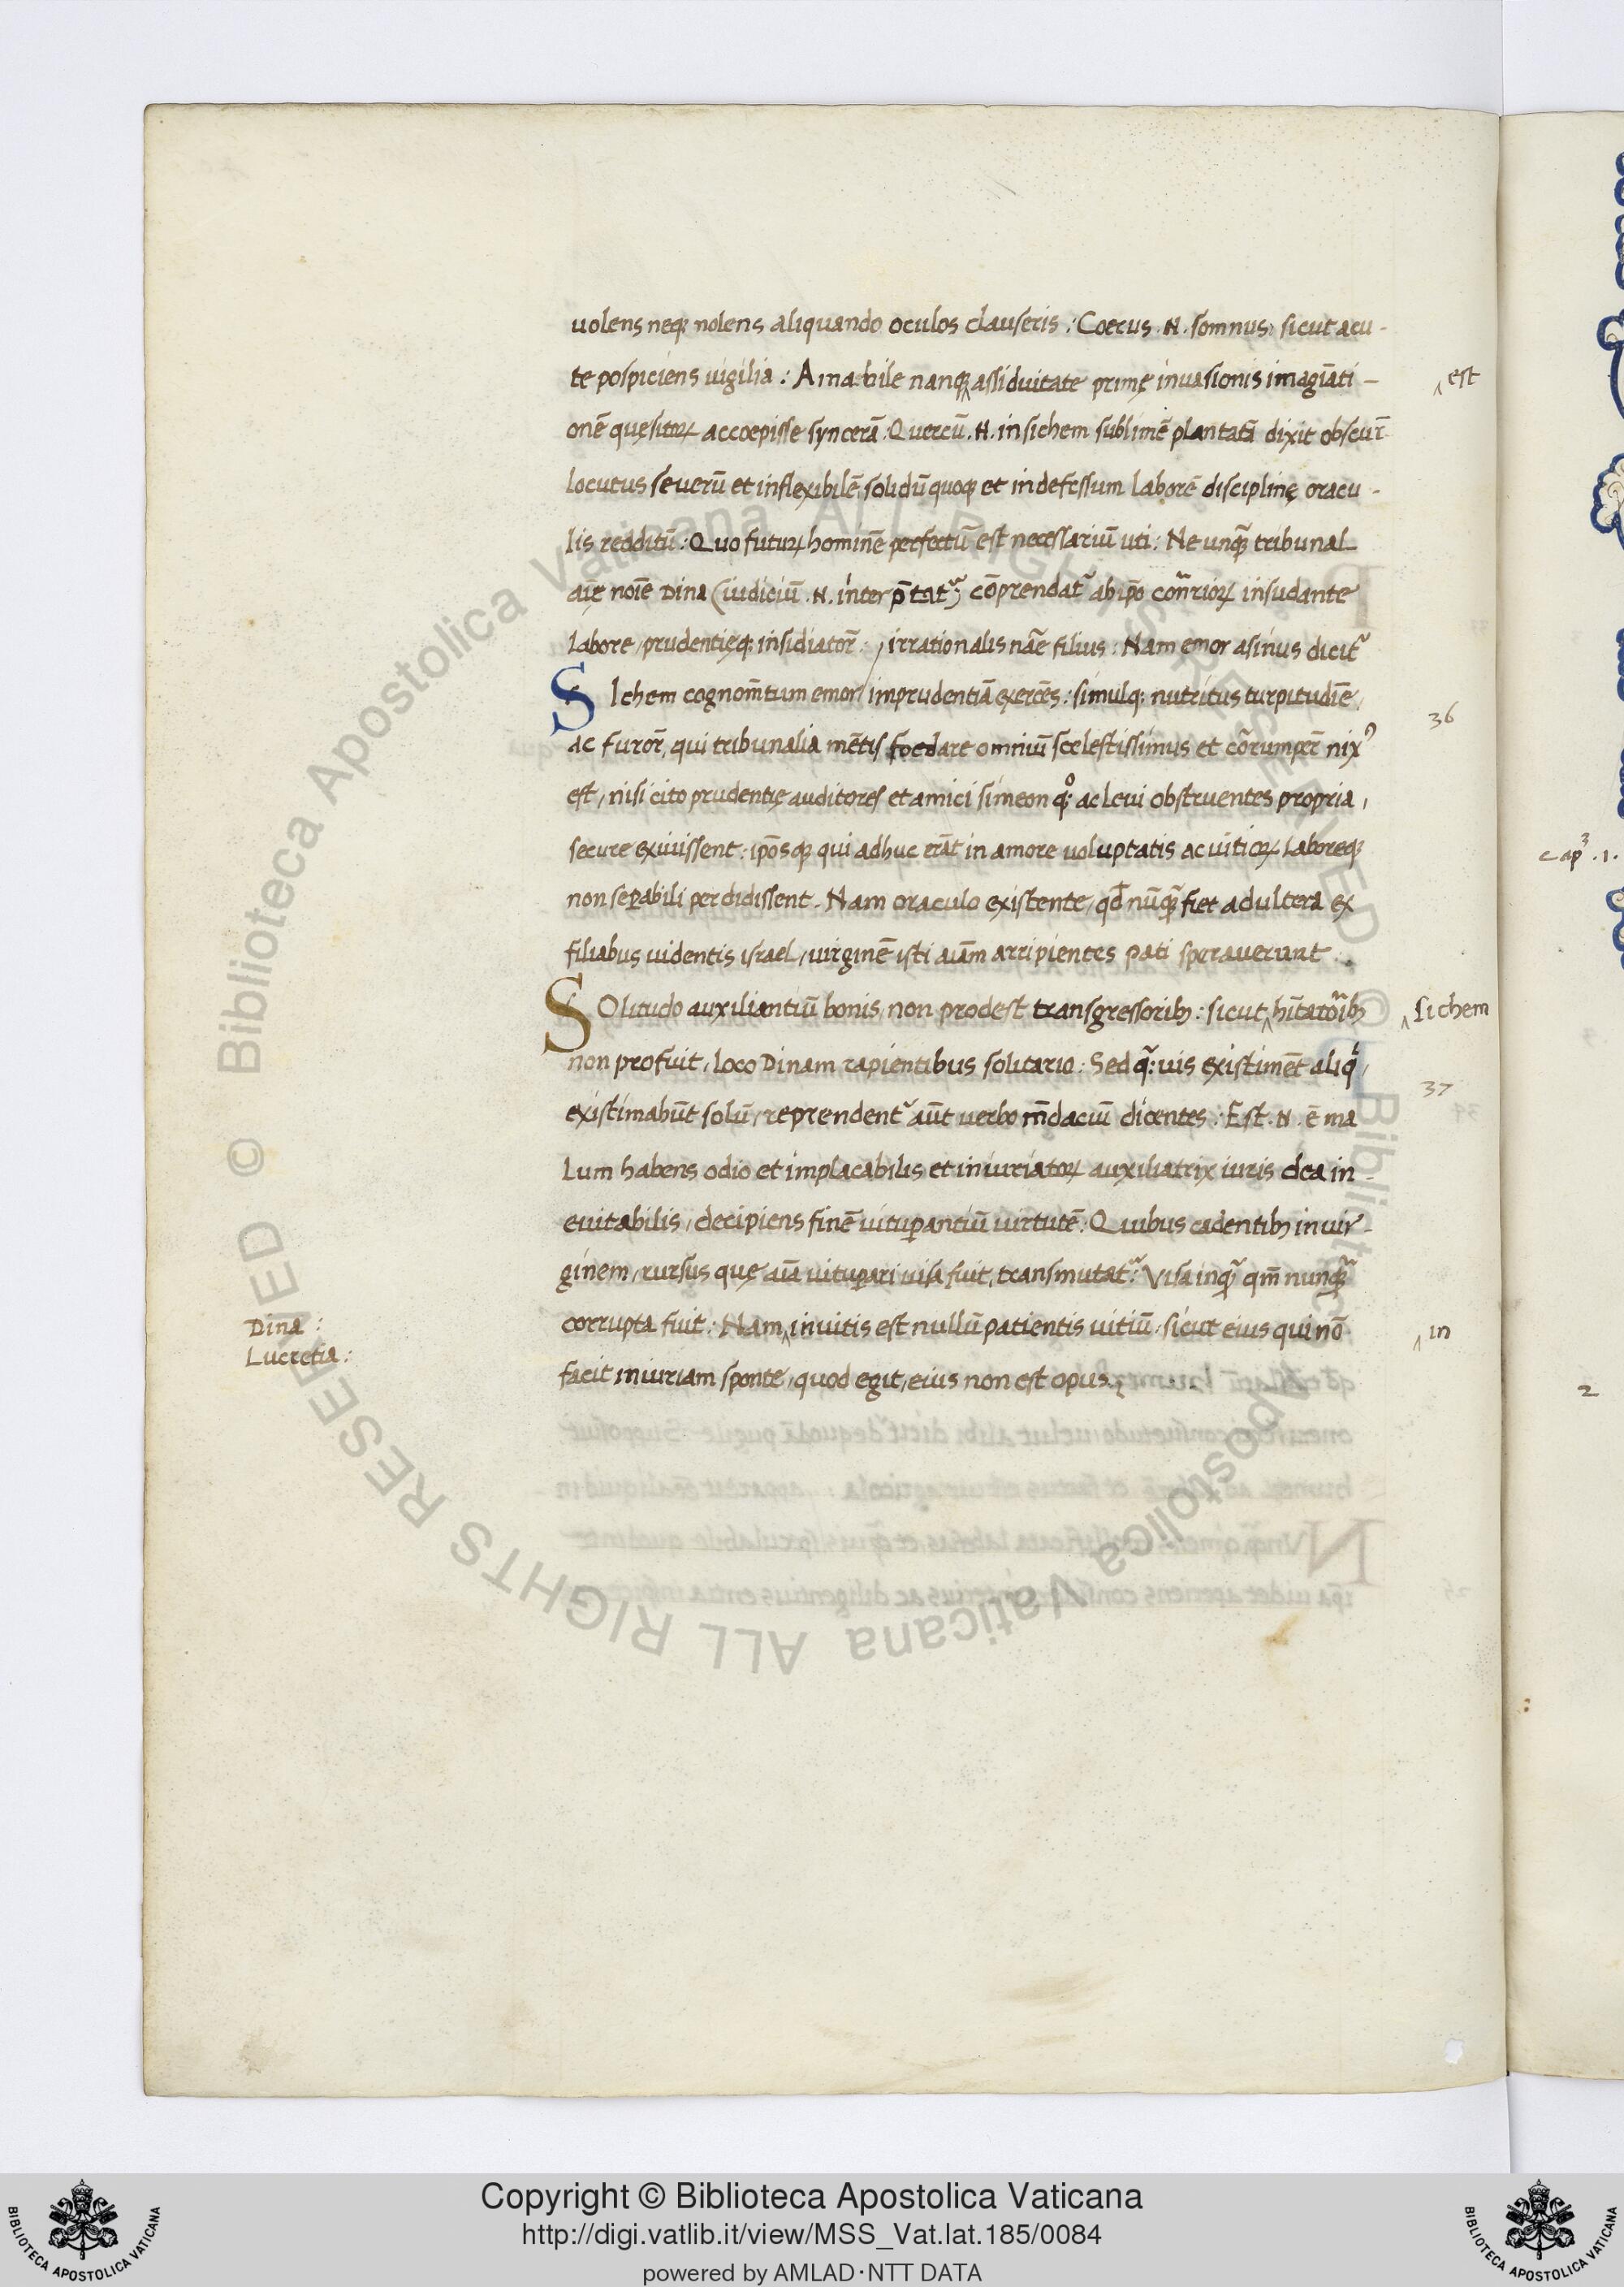 uolens neqꝫ nolens aliquando oculos clauseris : Coecus .N. somnus: sicut acu-
te pospiciens uigilia : Amabile nanqꝫ ^ assiduitate primę inuasionis imagīati-
^ est
onē quęsitoꝝ accoepisse syncerā. Quercū .N. in sichem sublimē plantatā dixit obscur̄
locutus seuerū et inflexibilē, solidū quoqꝫ et indefessum laborē disciplinę oracu-
lis redditū : Quo futuꝝ hominē perfectū est necessariū uti : Ne unqꝫ̃ tribunal
aīę noīe Dina (iudiciū .N. interp̄tat᷑) cōprendat᷑ ab ip̄o cōn̄rioꝝ insudante
labore, prudentięqꝫ insidiator̄ : irrationalis nāe filius : Nam emor asinus dicit᷑
SIchem cognom̄tum emor / imprudentiā exercēs : simulqꝫ nutritus turpitudīe,
36
ac furor̄, qui tribunalia mētis foedare omniū scelestissimus et cōrumper̄ nixꝰ
est, nisi cito prudentię auditores et amici simeon qͦꝫ ac leui obstruentes propria,
secure exiuissent : ip̄osqꝫ qui adhuc erāt in amore uoluptatis ac uitioꝝ laboreqꝫ
non seꝑabili perdidissent. Nam oraculo existente, qđ nūqꝫ̃ fiet adultera ex
filiabus uidentis israel, uirginē isti aīam arripientes pati sperauerunt .
SOlitudo auxiliantiū bonis, non prodest transgressoribꝫ : sicut ^ hītatoribꝫ
^ sichem
non profuit, loco Dinam rapientibus solitario : Sed qͣꝫuis existimēt aliqͥ,
37
existimabūt solū, reprendent᷑ aūt uerbo m̄daciū dicentes : Est .N. ē ma
lum habens odio et implacabilis et iniuriatoꝝ auxiliatrix iuris dea in-
euitabilis, decipiens finē uituꝑantiū uirtutē : Quibus cadentibꝫ in uir-
ginem, rursus quę aīa uituꝑari uisa fuit, transmutat᷑ : Visa inqͣꝫ qm̄ nunqꝫ̃
corrupta fuit : Nam ^ inuitis est nullū patientis uitiū, sicut eius qui nō
^ in
Dina :
Lucretia :
facit iniuriam sponte, quod egit, eius non est opus.
cap̊ .1.
2
Copyright © Biblioteca Apostolica Vaticana
http://digi.vatlib.it/view/MSS_Vat.lat.185/0084
powered by AMLAD·NTT DATA
BIBLIOTECA APOSTOLICA VATICANA
BIBLIOTECA APOSTOLICA VATICANA
© Biblioteca Apostolica Vaticana ALL RIGHTS RESERVED
© Biblioteca Apostolica Vaticana ALL RIGHTS RESERVED